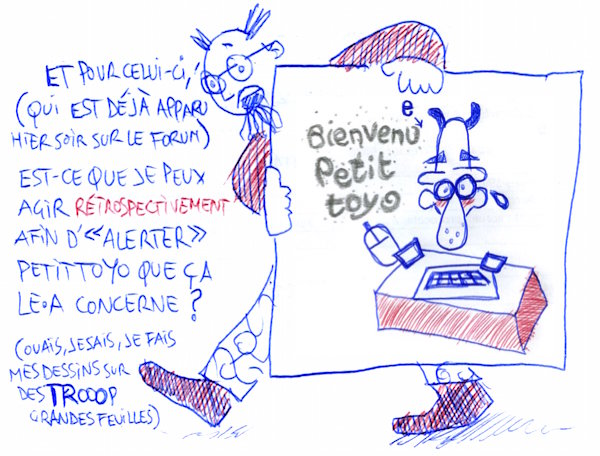 ET POUR CELUI-CI,
(QUI EST DÉJÀ APPARU
HIER SOIR SUR LE FORUM)
EST-CE QUE JE PEUX
AGIR RÉTROSPECTIVEMENT
AFIN D'«ALERTER»
PETITTOYO QUE ÇA
LE•A CONCERNE ?
(OUAIS, JE SAIS, JE FAIS
MES DESSINS SUR
DES TROOOP
GRANDES FEUILLES)
e
Bienvenu
Petit
toyo